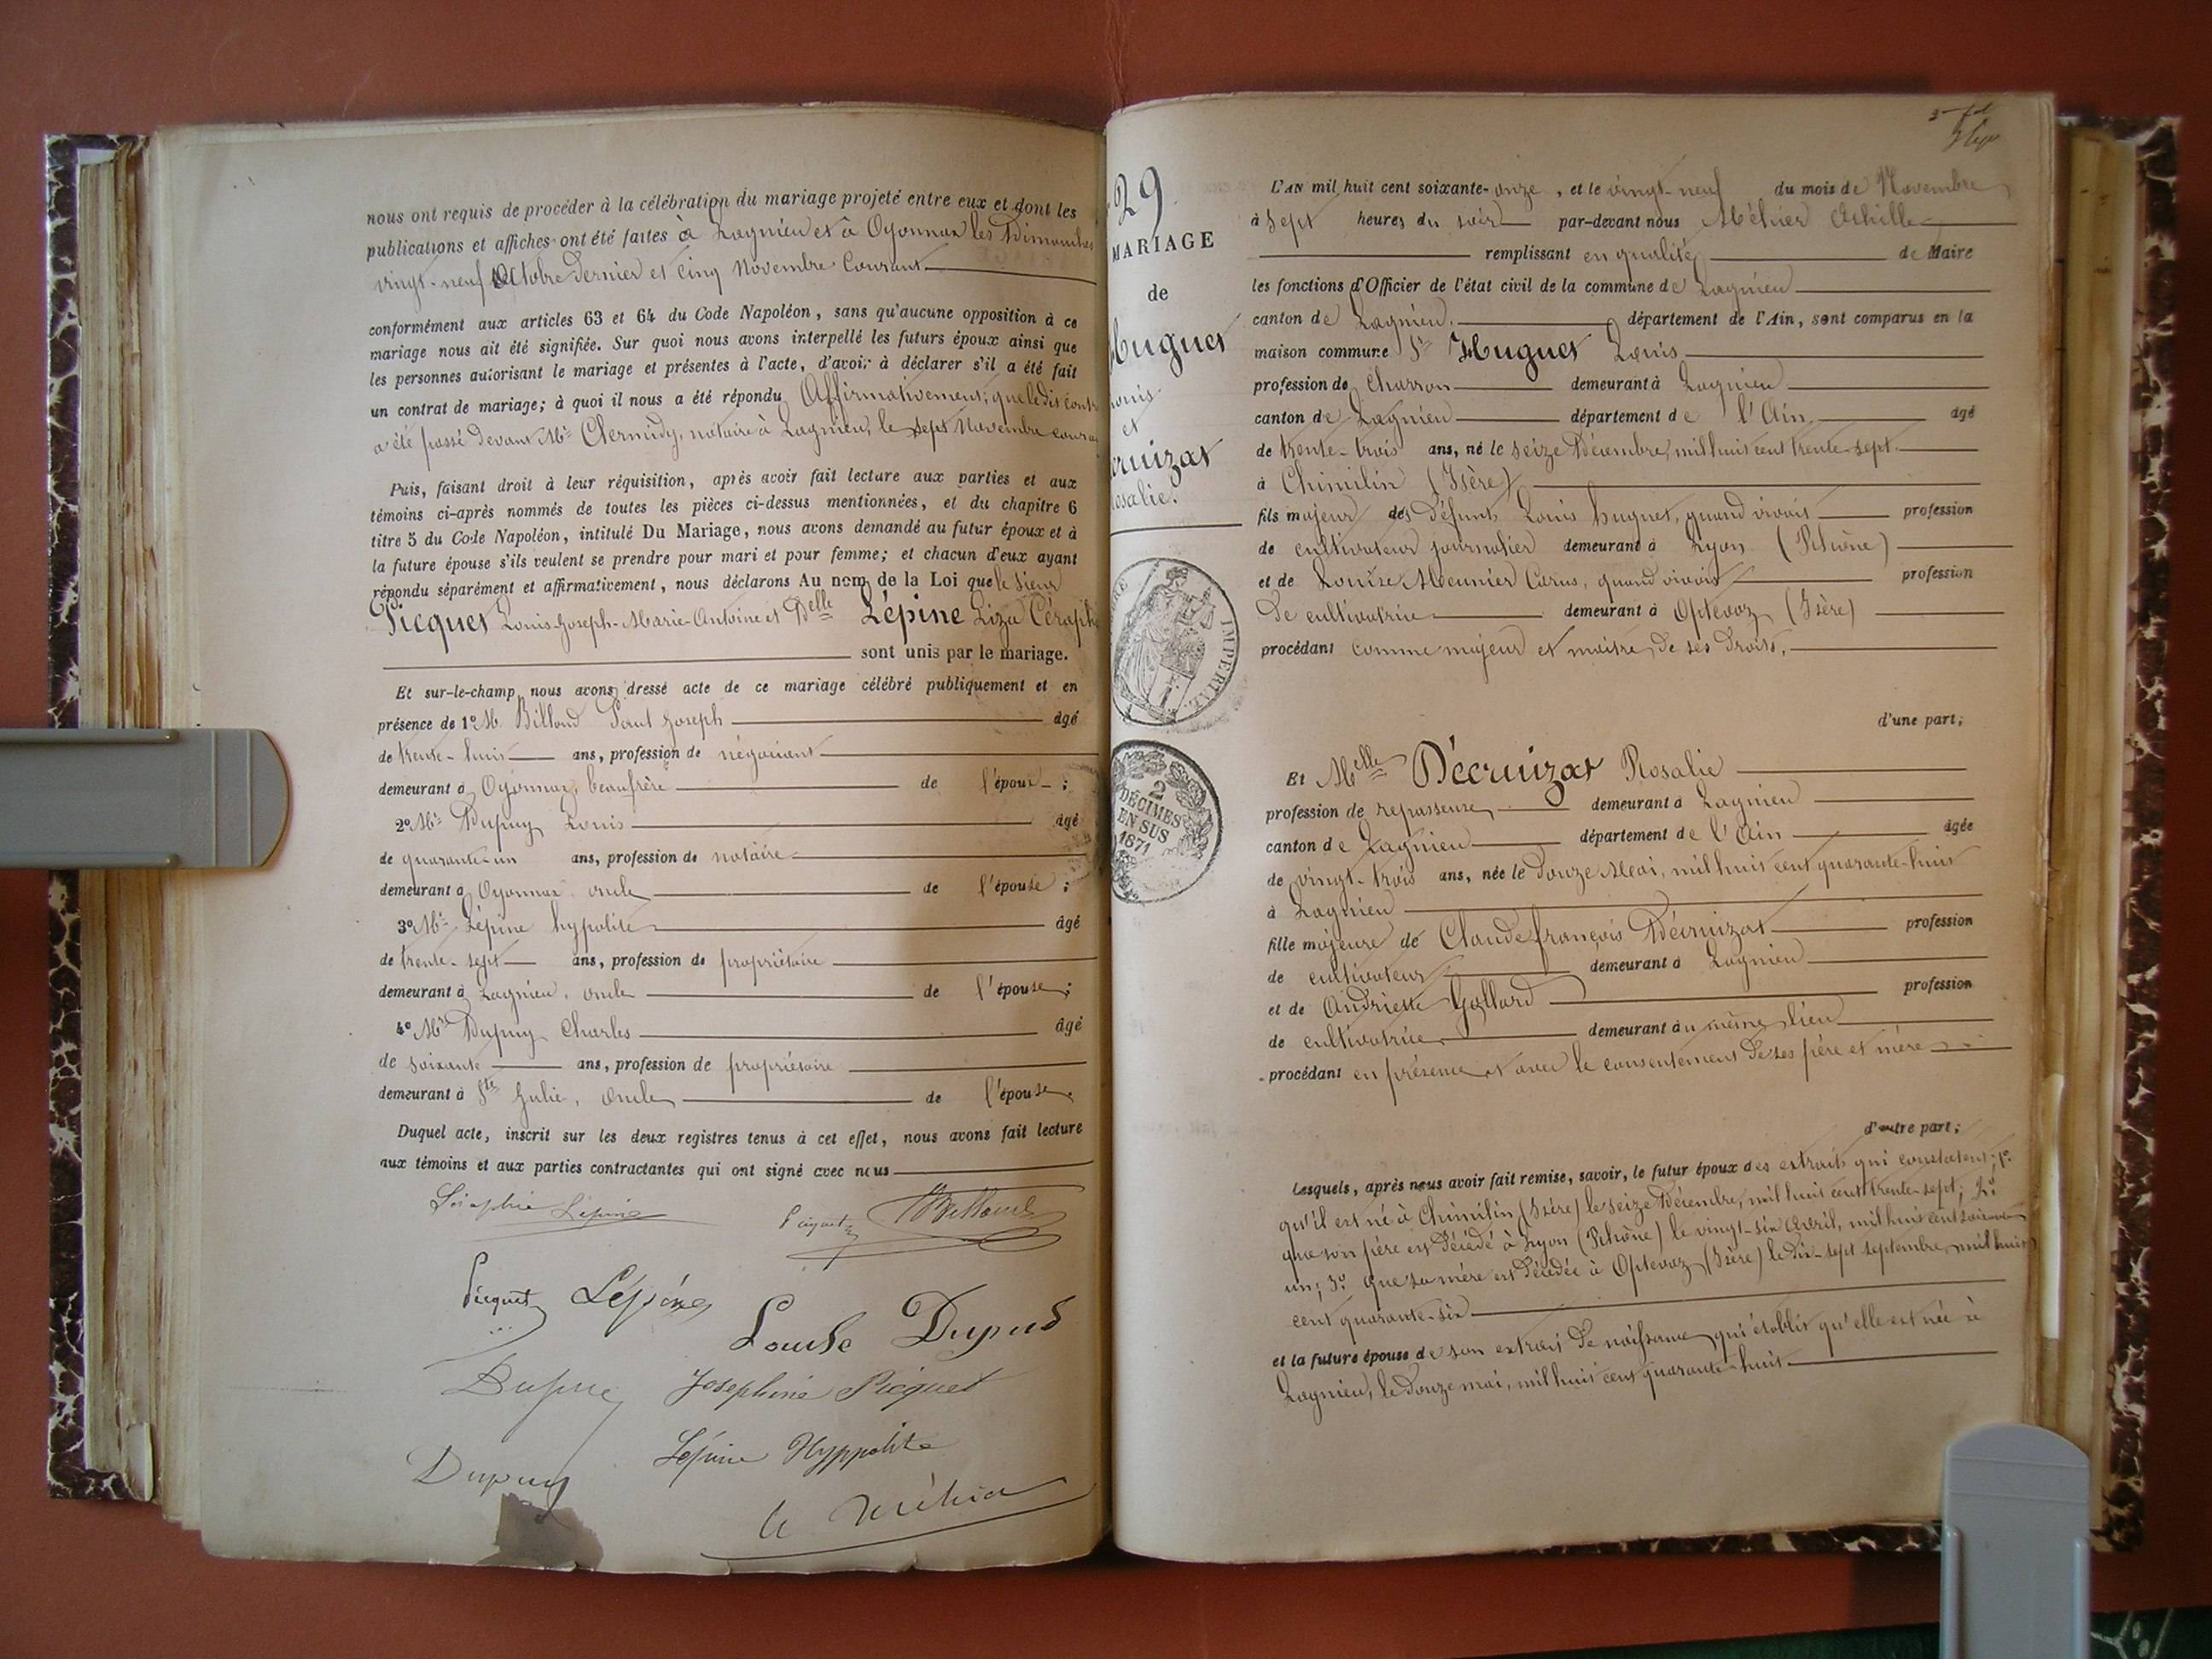 nous ont requis de procéder à la célébration du mariage projeté entre eux et dont les
publications et affiches ont été faites à Lagnieu et à Oyonnax les Dimanches
vingt-neuf Octobre dernier et cinq Novembre Courant
conformément aux articles 63 et 64 du Code Napoléon, sans qu'aucune opposition à ce
mariage nous ait été signifiée. Sur quoi nous avons interpellé les futurs époux ainsi que
les personnes autorisant le mariage et présentes à l'acte, d'avoir à déclarer s'il a été fait
un contrat de mariage; à quoi il nous a été répondu Affirmativement; que ledit
a été passé devant Me Chernidy, notaire à Lagnieu, le sept Novembre
Puis, faisant droit à leur réquisition, après avoir fait lecture aux parties et aux
témoins ci-après nommés de toutes les pièces ci-dessus mentionnées, et du chapitre 6
titre 5 du Code Napoléon, intitulé Du Mariage, nous avons demandé au futur époux et à
la future épouse s'ils veulent se prendre pour mari et pour femme; et chacun d'eux ayant
répondu séparément et affirmativement, nous déclarons Au nom de la Loi que le sieur
Picquet Louis-Joseph-Marie-Antoine et Delle Lépine Liza
sont unis par le mariage.
Et sur-le-champ nous avons dressé acte de ce mariage célébré publiquement et en
présence de 1º M. Billoud Paul Joseph âgé
de trente-huit ans, profession de négociant
demeurant à Oyonnax, beaufrère de l'époux ;
2º Mr Dupuy Louis âgé
de quarante-un ans, profession de notaire
demeurant à Oyonnax oncle de l'épouse ;
3º Mr Lépine hypolite âgé
de trente-sept ans, profession de propriétaire
demeurant à Lagnieu, oncle de l'épouse ;
4º Mr Dupuy Charles âgé
de soixante ans, profession de propriétaire
demeurant à Ste Julie, oncle de l'épouse.
Duquel acte, inscrit sur les deux registres tenus à cet effet, nous avons fait lecture
aux témoins et aux parties contractantes qui ont signé avec nous
Séraphie Lépine
Picquet Billoud
Picquet Lépine
Louise Dupuis
Josephine Picquet
Lépine Hyppolite
Dupuy
29
MARIAGE
de
Huguet
et
IMPÉRIAL
2
DÉCIMES
EN SUS
1871
L'AN mil huit cent soixante-onze, et le vingt-neuf du mois de Novembre
à sept heures du soir par-devant nous Méhier Achille
remplissant en qualité de Maire
les fonctions d'Officier de l'état civil de la commune de Lagnieu
canton de Lagnieu. département de l'Ain, sont comparus en la
maison commune Sr Huguet Louis
profession de Charron demeurant à Lagnieu
canton de Lagnieu département de l'Ain âgé
de trente-trois ans, né le seize Décembre, mil huit cent trente-sept
à Chimilin (Isère)
fils majeur des défunts Louis huguet, quand vivait profession
de cultivateur journalier demeurant à Lyon (Rhône)
et de Louise Meunier Carus, quand vivait profession
de cultivatrice demeurant à Optevoz (Isère)
procédant comme majeur et maître de ses droits,
d'une part;
Et Melle Décruizat Rosalie
profession de repasseuse demeurant à Lagnieu
canton de Lagnieu département de l'Ain âgée
de vingt-trois ans, née le douze Mai, mil huit cent quarante-huit
à Lagnieu
fille majeure de Claude françois Décruizat profession
de cultivateur demeurant à Lagnieu
et de Andriette Gallard profession
de cultivatrice demeurant au même lieu
procédant en présence et avec le consentement de ses père et mère
d'autre part;
Lesquels, après nous avoir fait remise, savoir, le futur époux des extraits qui constatent; 1º
qu'il est né à Chimilin (Isère) le seize Décembre, mil huit cent trente-sept; 2º
que son père est décédé à Lyon (Rhône) le vingt-six Avril, mil huit cent soixante
un; 3º que sa mère est décédée à Optevoz (Isère) le dix-sept septembre, mil huit
cent quarante-six
et la future épouse de son extrait de naissance qui établit qu'elle est née à
Lagnieu, le douze mai, mil huit cent quarante-huit